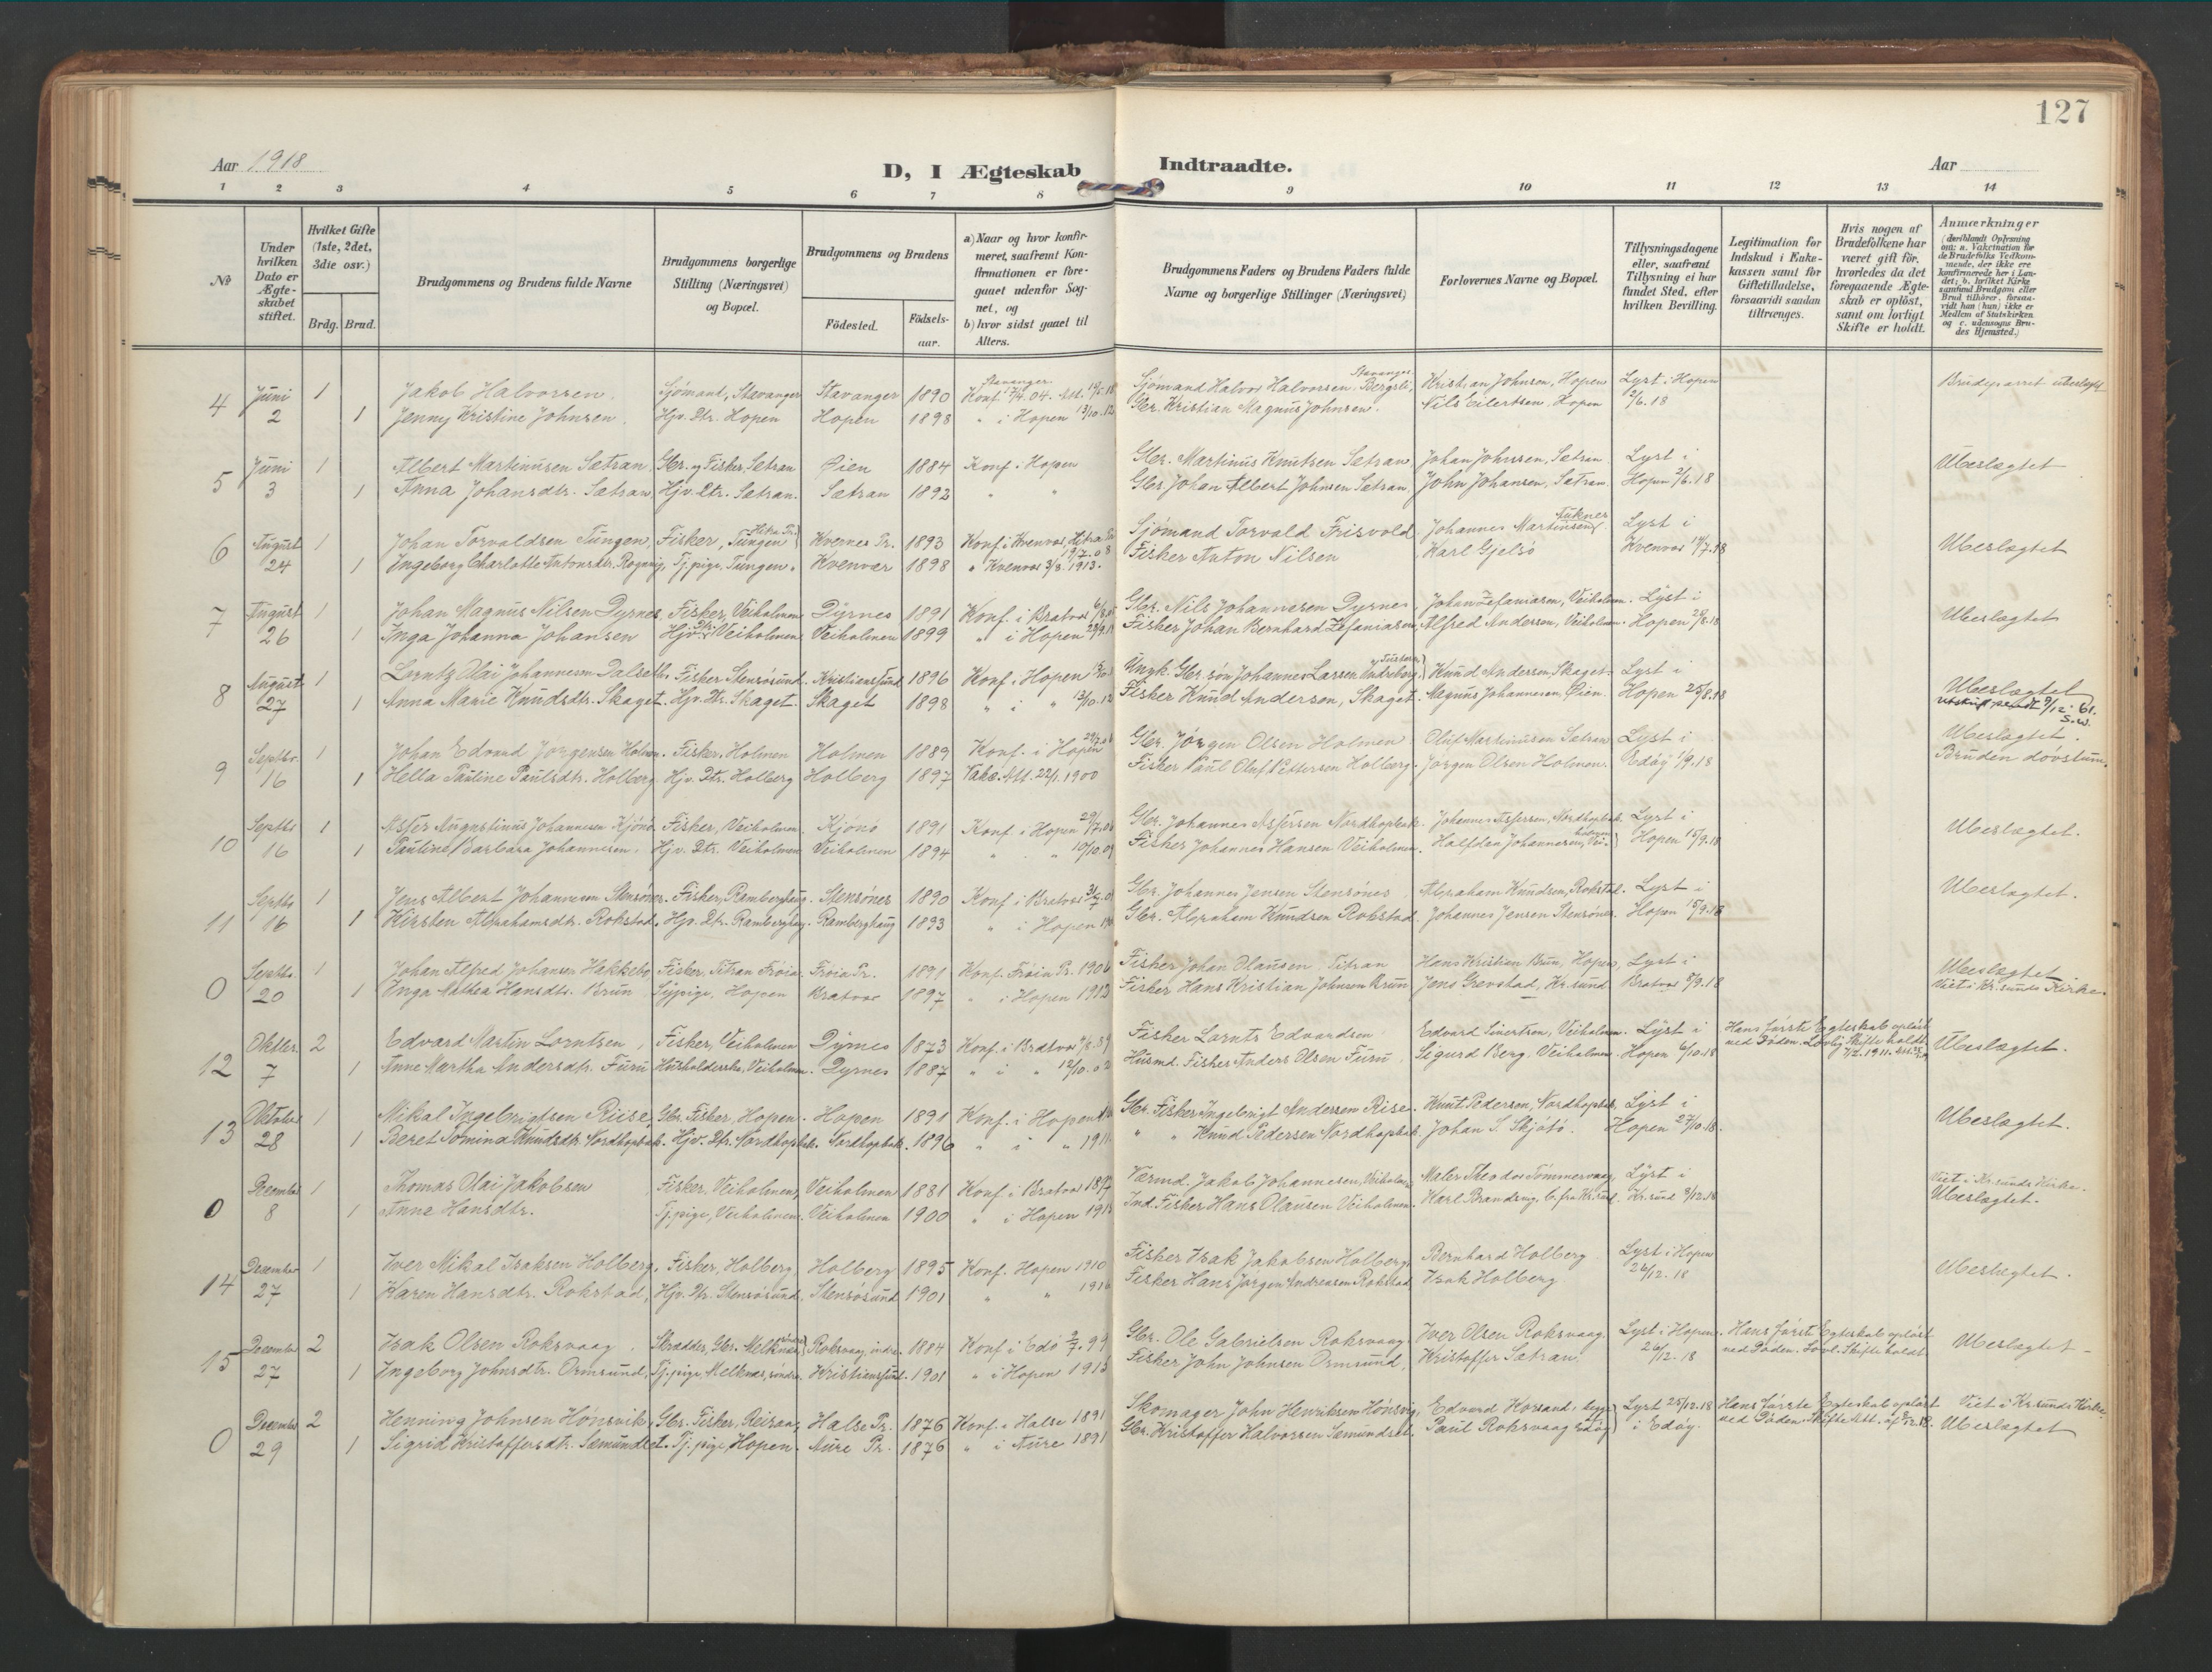 127
Aar 1918
D, I Ægteskab Indtraadte.
Aar
1 2 3 4 5 6 7 8 9 10 11 12 13 14
№
Under hvilken Dato er Ægteskabet stiftet.
Hvilket Gifte (1ste, 2det, 3die osv.)
Brdg. Brud.
Brudgommens og Brudens fulde Navne
Brudgommens borgerlige Stilling (Næringsvei) og Bopæl.
Brudgommens og Brudens
Födested. Födsels-aar.
a) Naar og hvor konfirmeret, saafremt Konfirmationen er foregaaet udenfor Sognet, og b) hvor sidst gaaet til Alters.
Brudgommens Faders og Brudens Faders fulde Navne og borgerlige Stillinger (Næringsvei)
Forlovernes Navne og Bopæl.
Tillysningsdagene eller, saafremt Tillysning ei har fundet Sted, efter hvilken Bevilling.
Legitimation for Indskud i Enkekassen samt for Giftetilladelse, forsaavidt saadan tiltrænges.
Hvis nogen af Brudefolkene har været gift för, hvorledes da det foregaaende Ægteskab er oplöst, samt om lovligt Skifte er holdt.
Anmærkninger
(deriblandt Oplysning om: a. Vakcination for de Brudefolks Vedkommende, der ikke ere konfirmerede her i Landet; b. hvilket Kirkesamfund Brudgom eller Brud tilhörer, forsaavidt han (hun) ikke er Medlem af Statskirken og c. udensogns Brudes Hjemsted.)
4 Juni 1 Jakob Halvorsen. Sjömand, Stavanger Stavanger 1890 Konf. Stavanger 17/4.04. Sjömand Halvor Halvorsen Bergsli, Stavanger. Kristian Johnsen, Hopen Lyst i Hopen
2 1 Jenny Kristine Johnsen. Hjv. Dtr. Hopen Hopen 1898 " i Hopen 13/10.12 Gbr. Kristian Magnus Johnsen. Nils Eilertsen, Hopen 2/6.18
5 Juni 1 Albert Martinusen Sætran, Gbr. og Fisker, Sætran Öien 1884 Konf. i Hopen Gbr. Martinus Knutsen Sætran, Johan Johnsen, Sætran Lyst i Ubeslægtet
3 1 Anna Johansdtr. Sætran, Hjv. Dtr. Sætran. Sætran 1892 " " Gbr. Johan Albert Johnsen Sætran, John Johansen, Sætran. Hopen 2/6.18
6 August 1 Johan Torvaldsen Tungen, Fisker, Tungen Hitra Pr. Kvernes Pr. 1893 Konf. i Kvenvær, Hitra Pr. 19/7.08 Sjömand Torvald Frisvold Johannes Martinsen Lyst i Ubeslægtet
24 1 Ingeborg Charlotte Antonsdtr. Tj. pige, Tungen. Kvenvær 1898 " Kvenvær 3/8.1913. Fisker Anton Nilsen Karl Gjelsö Kvenvær 14/7.18
7 August 1 Johan Magnus Nilsen Dyrnes, Fisker, Veiholmen Dyrnes 1891 Konf. i Bratvær Gbr. Nils Johannesen Dyrnes, Johan Zefaniasen, Veiholmen. Lyst i Ubeslægtet
26 1 Inga Johanna Johansen Hjv. Dtr. Veiholmen Veiholmen 1899 " i Hopen Fisker Johan Bernhard Zefaniasen, Alfred Andersen, Veiholmen. Hopen
8 August 1 Lorentz Olai Johannesen Dalseth. Fisker Stensösund. Kristiansund 1896 Konf. i Hopen Ungk. Gbr. sön Johannes Larsen Knud Andersen, Skaget. Lyst i Ubeslægtet
27 1 Anna Marie Knudsdtr. Skaget. Hjv. Dtr. Skaget. Skaget 1898 " i " 13/10.12 Fisker Knud Andersen, Skaget. Magnus Johannesen, Öien. Hopen 25/8.18 utskrift sendt 9/12-61. S.W.
9 Septbr. 1 Johan Edvand Jörgensen Holmen. Fisker. Holmen Holmen 1889 Konf. i Hopen Gbr. Jörgen Olsen Holmen Oluf Martinusen Sætran Lyst i Ubeslægtet.
16 1 Hella Pauline Paulsdtr. Holberg Hjv. Dtr. Holberg Holberg 1897 Vakc. Att. 22/1.1900 Fisker Paul Oluf Pettersen Holberg. Jörgen Olsen Holmen. Edöy 1/9.18 Bruden dövstum.
10 Septbr 1 Asfer Augustinus Johannesen Kjönö. Fisker, Veiholmen. Kjönö 1891 Konf. i Hopen Gbr. Johannes Asfersen Nordhopbak. Johannes Asfersen, Nordhopbak. Lyst i Ubeslægtet.
16 1 Pauline Barbara Johannesen. Hjv. Dtr. Veiholmen Veiholmen 1894 " " 10/10.09 Fisker Johannes Hansen Veiholmen. Halfdan Johannesen, Veiholmen Hopen 15/9.18
11 Septbr 1 Jens Albert Johannesen Stensönes. Fisker, Ramberghaug. Stensönes 1890 Konf. i Bratvær Gbr. Johannes Jensen Stensönes, Abraham Knudsen, Rokstad. Lyst i Ubeslægtet.
16 1 Kirsten Abrahamsdtr. Rokstad. Hjv. Dtr. Ramberghaug. Ramberghaug 1893 " i Hopen Gbr. Abraham Knudsen Rokstad. Johannes Jensen Stensönes. Hopen 15/9.18
0 Septbr. 1 Johan Alfred Johansen Hakkebo Fisker, Titran Fröia. Fröia Pr. 1891 Konf. Fröia Pr. 1906 Fisker Johan Olausen, Titran Hans Kristian Brun, Hopen, Lyst i Ubeslægtet.
20 1 Inga Mathea Hansdtr. Brun Sypige, Hopen Bratvær 1897 " i Hopen 1912 Fisker Hans Kristian Johnsen Brun Jens Grevstad, Kr.sund Bratvær 8/9.18 Viet i Kr. sunds Kirke.
12 Oktbr. 2 Edvard Martin Lorntsen, Fisker, Veiholmen Dyrnes 1873 Konf. i Bratvær Fisker Lornts Edvardsen Edvard Sivertsen, Veiholmen. Lyst i Hans förste Egteskab oplöst Ubeslægtet.
7 1 Anne Martha Andersdtr. Furu Husholderske, Veiholmen. Dyrnes 1887 " i " 12/10.02 Husmd. Fisker Anders Olsen Furu, Sigurd Berg, Veiholmen. Hopen 6/10.18 ved Döden. Lovlig Skifte holdt
13 Oktober 1 Mikal Ingebrigtsen Riise, Gbr. Fisker, Hopen. Hopen 1891 Konf. i Hopen Gbr. Fisker Ingebrigt Andersen Rise. Knut Pedersen, Nordhopbak, Lyst i Ubeslægtet.
28 1 Beret Tomina Knudsdtr. Nordhopbak. Hjv. Dtr. Nordhopbak. Nordhopbak. 1896 " i " 1911 " " Knud Pedersen Nordhopbak. Johan S. Skjölö. Hopen 27/10.18.
0 December 1 Thomas Olai Jakobsen Fisker, Veiholmen, Veiholmen 1881 Konf. i Bratvær 1897 Værmd. Jakob Johannesen, Veiholmen Maler Theodor Tömmervaag, Lyst i Viet i Kr.sunds Kirke.
8 1 Anne Hansdtr. Tj. pige, Veiholmen. Veiholmen 1900 " i Hopen Ind. Fisker Hans Olausen Veiholmen. Kr.sund 8/12.18 Ubeslægtet.
14 December 1 Iver Mikal Isaksen Holberg, Fisker, Holberg, Holberg 1895 Konf. Hopen 1910 Fisker Isak Jakobsen Holberg, Bernhard Holberg Lyst i Hopen Ubeslægtet.
27 1 Karen Hansdtr. Rokstad, Hjv. Dtr. Stensösund, Stensösund 1901 " " 1916 Fisker Hans Jörgen Andreasen Rokstad, Isak Holberg 26/12.18
15 December 2 Isak Olsen Roksvaag. Skrædder, Gbr. Melknes, söndre Roksvaag, indre. 1884 Konf. i Edö Gbr. Ole Gabrielsen Roksvaag. Iver Olsen Roksvaag. Lyst i Hopen. Hans förste Egteskab oplöst Ubeslægtet
27 1 Ingeborg Johnsdtr. Ormsund, Tj. pige, Melknes, söndre. Kristiansund. 1901 " i Hopen Fisker John Johnsen Ormsund, Kristoffer Sætran. 26/12.18 ved Döden. Lovl. Skifte holdt
0 December 2 Henning Johnsen Hönsvik, Gbr. Fisker, Halse Pr. 1876 Konf. i Halse 1891 Skomager John Henriksen Hönsvig, Edvard Korsand, begge Lyst 25/12.18 Hans förste Egteskab oplöst Viet i Kr.sunds Kirke.
29 1 Sigrid Kristoffersdtr. Sæmundset. Tj. pige Hopen. Aure Pr. 1876 " i Aure 1891 Gbr. Kristoffer Halvorsen Sæmundset. Paul Roksvaag Edöy i Edöy. ved Döden. Skifteatt. af Ubeslægtet